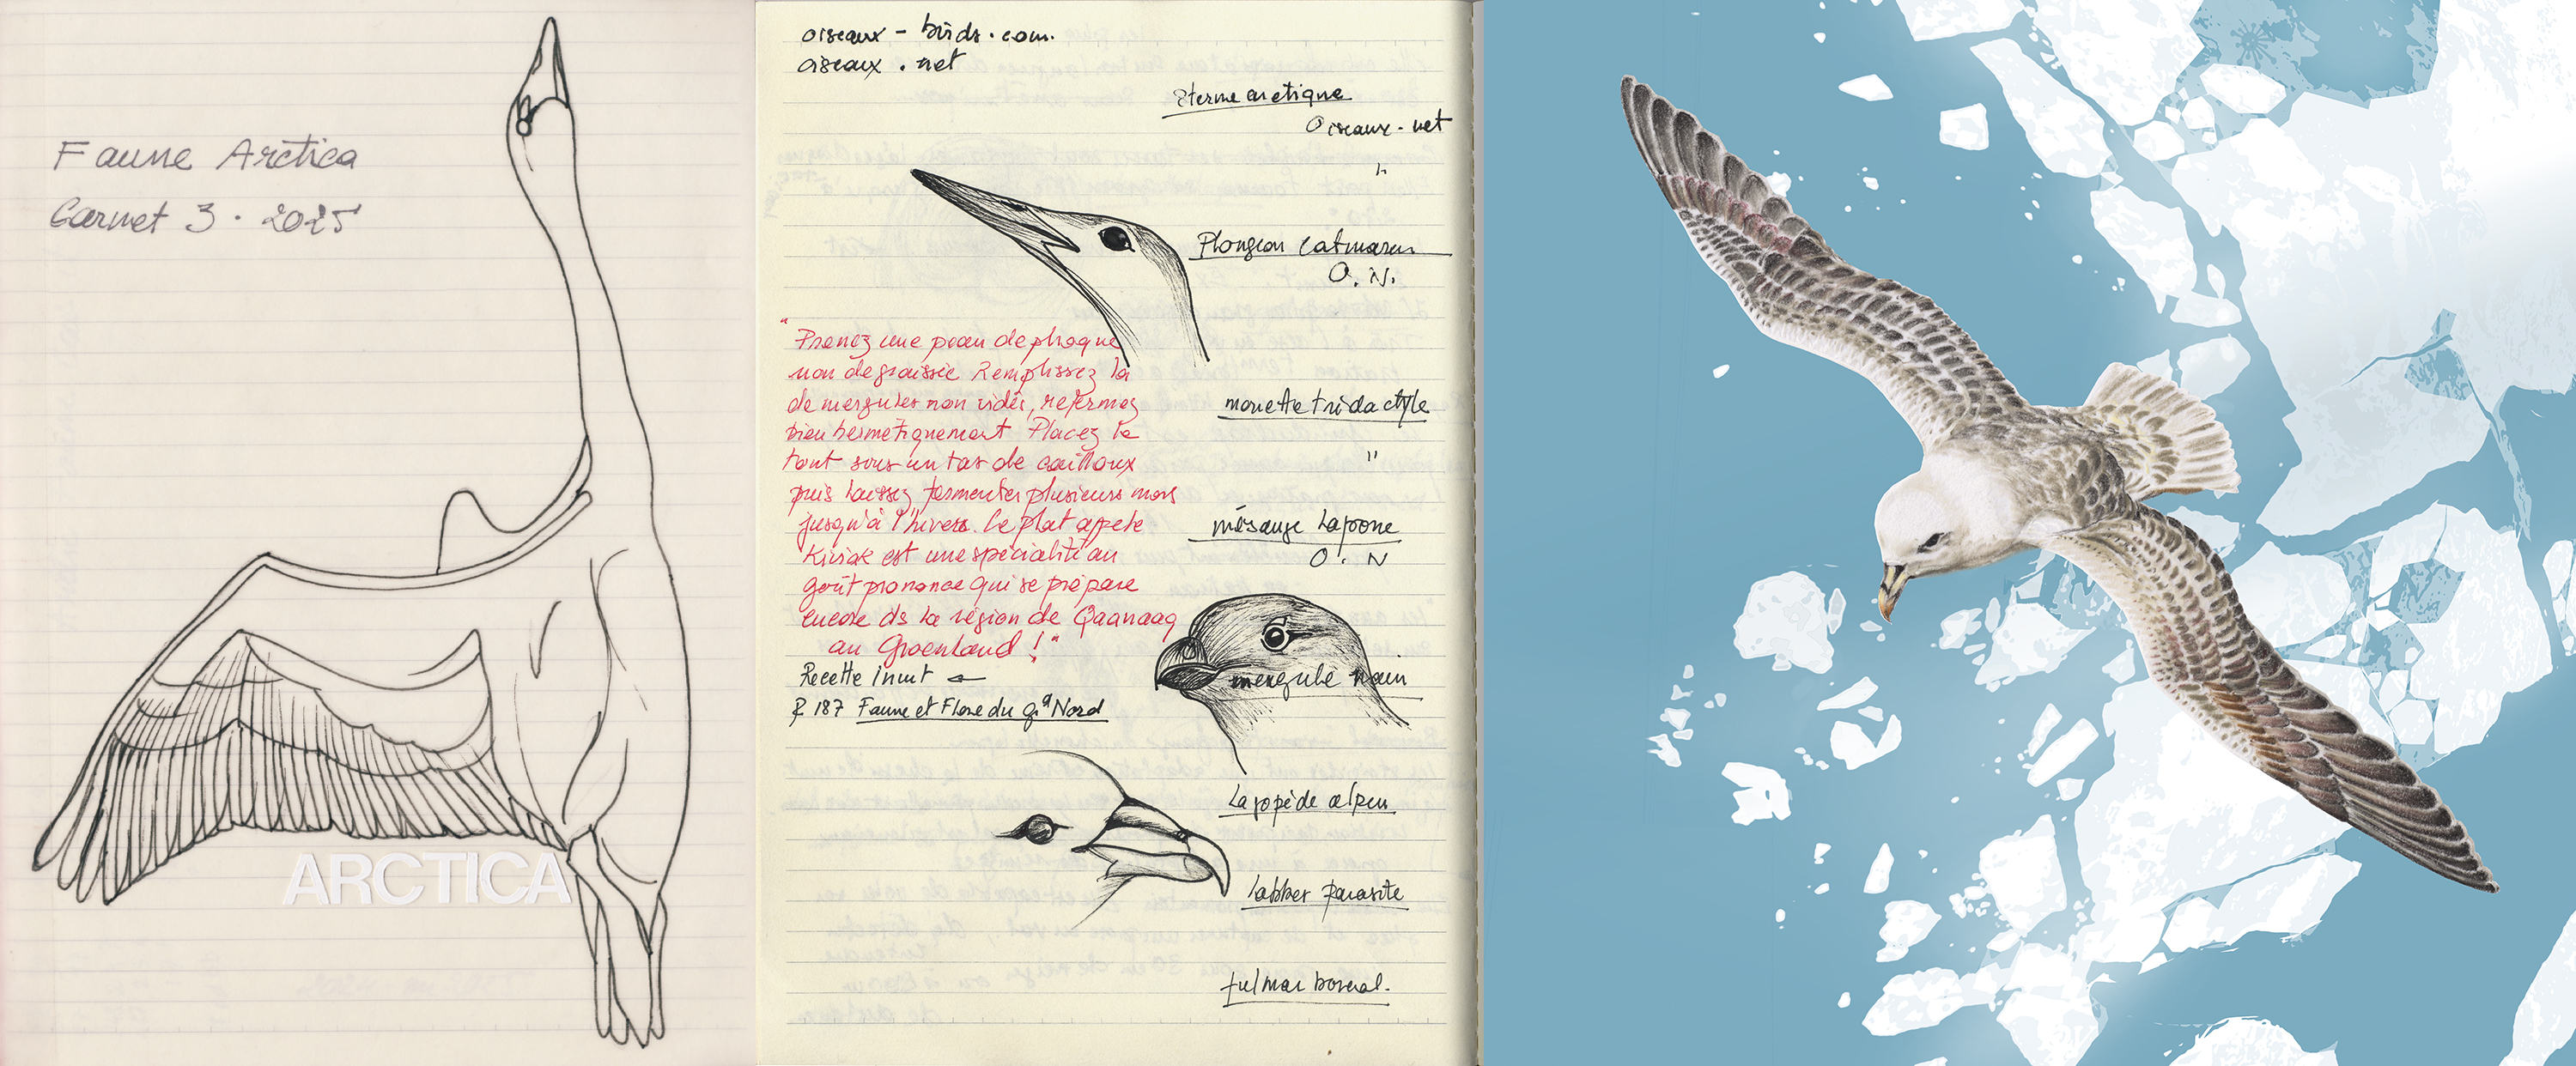 Faune Arctica
Carnet 3 • 2025
ARCTICA
oiseaux - birds.com.
oiseaux . net
Sterne arctique
Oiseaux. net
"
Plongeon catmarin
O. N.
"Prenez une peau de phoque
non dégraissée Remplissez la
de mergules non vidés, refermez
bien hermétiquement Placez le
tout sous un tas de cailloux
puis laissez fermenter plusieurs mois
jusqu'à l'hiver. Ce plat appelé
Kiviak est une spécialité au
goût prononcé qui se prépare
encore ds la région de Qaanaaq
au Groenland !"
Recette inuit ←
P 187 Faune et Flore du gd Nord
mouette tridactyle
"
mésange lapone
O. N
mergule nain
Lagopède alpin
labbe parasite
fulmar boréal.